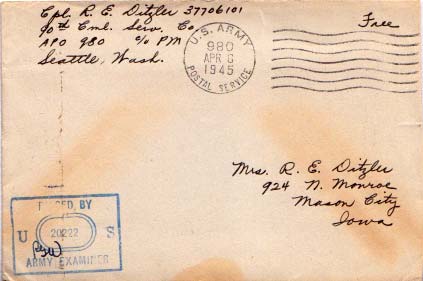 Cpl. R. E. Ditzler 37706101
90th Cml. Serv. Co
APO 980 c/o PM
Seattle, Wash.
Free
U.S. ARMY
980
APR 6
1945
POSTAL SERVICE
Mrs. R. E. Ditzler
924 N. Monroe
Mason City
Iowa
PASSED BY
U 20222 S
ARMY EXAMINER